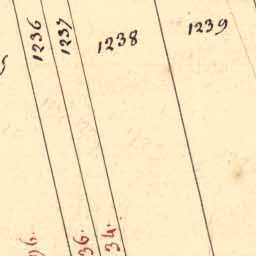 1236
1237
1238
1239
36.
34.